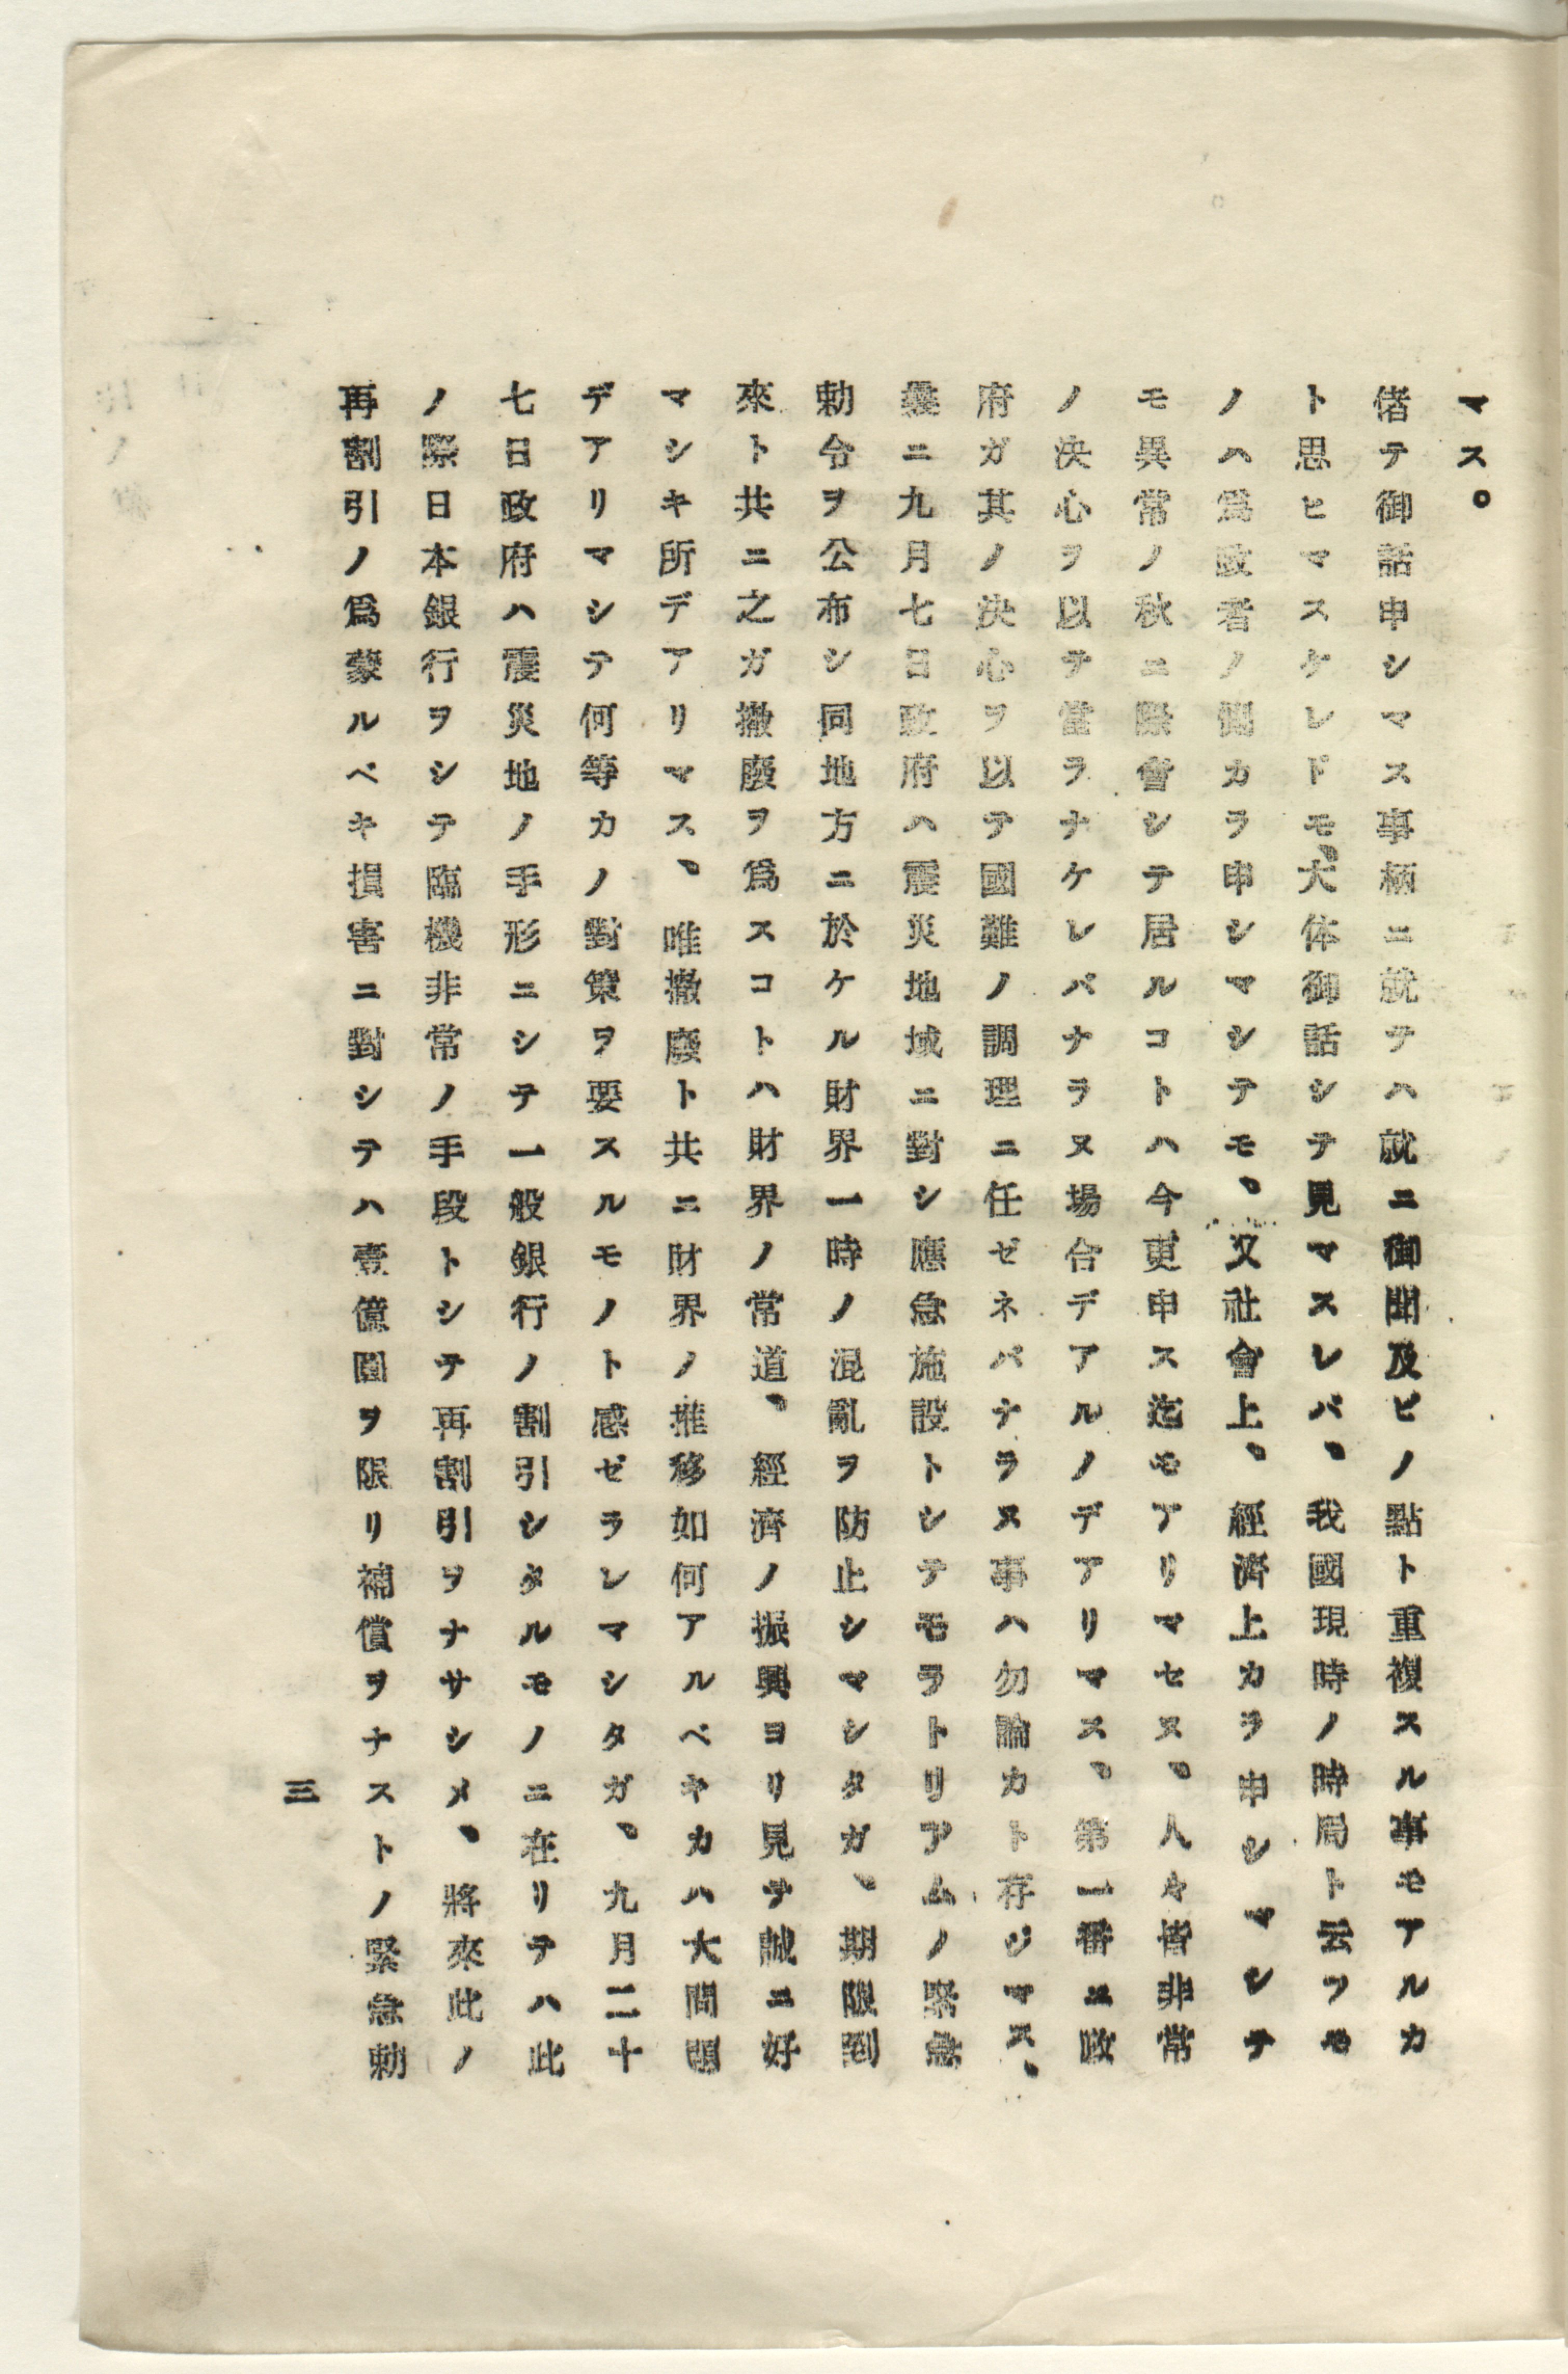 マス。
偖テ御話申シマス事柄ニ就テハ就ニ御聞及ビノ點ト重複スル事モアルカ
ト思ヒマスケレドモ、大体御話シテ見マスレバ、我國現時ノ時局ト云フモ
ノハ爲政者ノ側カラ申シマシテモ、又社會上、經濟上カラ申シマシテ
モ異常ノ秋ニ際會シテ居ルコトハ今更申ス迄モアリマセヌ、人々皆非常
ノ決心ヲ以テ當ラナケレバナラヌ場合デアルノデアリマス、第一番ニ政
府ガ其ノ決心ヲ以テ國難ノ調理ニ任ゼネバナラヌ事ハ勿論カト存ジマス、
曩ニ九月七日政府ハ震災地域ニ對シ應急施設トシテモラトリアムノ緊急
勅令ヲ公布シ同地方ニ於ケル財界一時ノ混亂ヲ防止シマシタガ、期限到
來ト共ニ之ガ撤廢ヲ爲スコトハ財界ノ常道、經濟ノ振興ヨリ見テ誠ニ好
マシキ所デアリマス、唯撤廢ト共ニ財界ノ推移如何アルベキカハ大問題
デアリマシテ何等カノ對策ヲ要スルモノト感ゼラレマシタガ、九月二十
七日政府ハ震災地ノ手形ニシテ一般銀行ノ割引シタルモノニ在リテハ此
ノ際日本銀行ヲシテ臨機非常ノ手段トシテ再割引ヲナサシメ、將來此ノ
再割引ノ爲蒙ルベキ損害ニ對シテハ壹億圓ヲ限リ補償ヲナストノ緊急勅
三